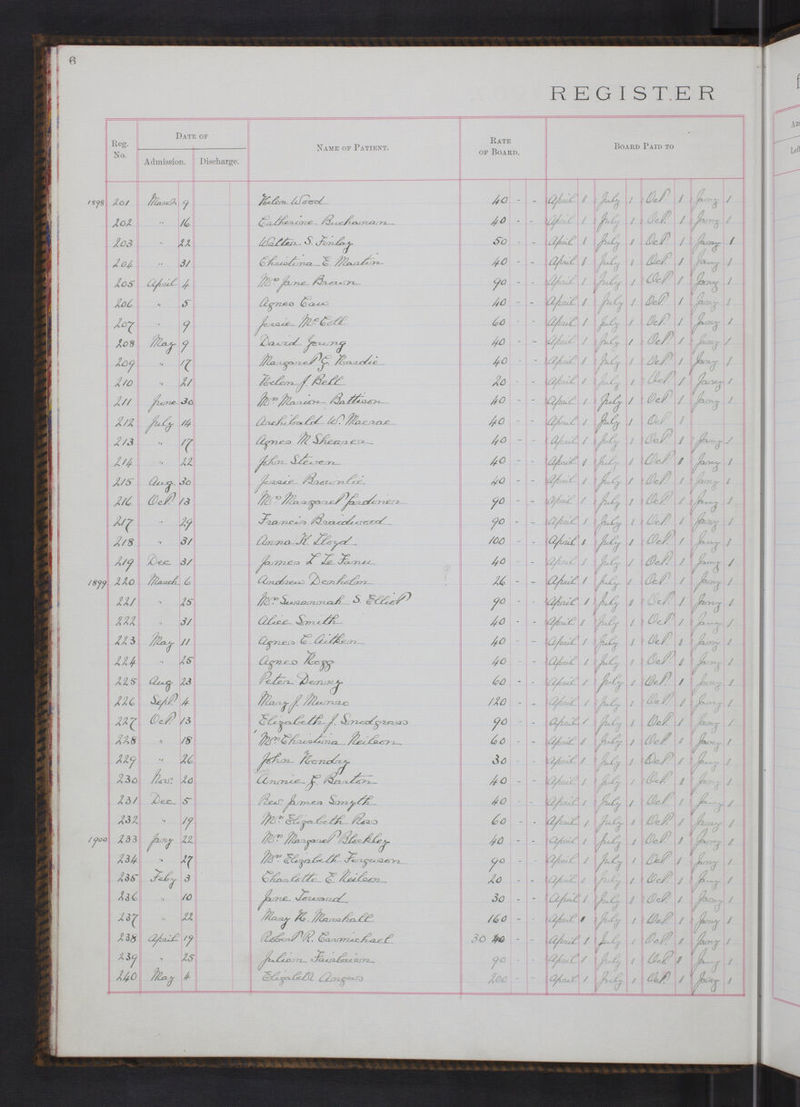 6
REGISTER
Reg. No. Date of Name of Patient. Rate of Board. Board Paid to
Admission. Discharge.
1898 201 March 9 Helen Wood 40 - - April 1 July 1 Oct 1 Jany 1
202 " 16 Catherine Buchanan 40 - - April 1 July 1 Oct 1 Jany 1
203 " 22 Walter S. Finlay 50 - - April 1 July 1 Oct 1 Jany 1
204 " 31 Christina E. Martin 40 - - April 1 July 1 Oct 1 Jany 1
205 April 4 Mrs Jane Brown 90 - - April 1 July 1 Oct 1 Jany 1
206 " 5 Agnes 40 - - April 1 July 1 Oct 1 Jany 1
207 " 9 Jessie McColl 60 - - April 1 July 1 Oct 1 Jany 1
208 May 9 David Young 40 - - April 1 July 1 Oct 1 Jany 1
209 " 17 Margaret G. Hardie 40 - - April 1 July 1 Oct 1 Jany 1
210 " 21 Helen J Bell 20 - - April 1 July 1 Oct 1 Jany 1
211 June 30 Mrs Marion Battison 40 - - April 1 July 1 Oct 1 Jany 1
212 July 14 Archibald W. Macrae 40 - - April 1 July 1 Oct 1
213 " 17 Agnes M Shearer 40 - - April 1 July 1 Oct 1 Jany 1
214 " 22 John Steven 40 - - April 1 July 1 Oct 1 Jany 1
215 Aug. 30 Jessie Brownlie 40 - - April 1 July 1 Oct 1 Jany 1
216 Oct 13 Mrs Margaret Gardener 90 - - April 1 July 1 Oct 1 Jany 1
217 " 29 Francis Braidwood 90 - - April 1 July 1 Oct 1 Jany 1
218 " 31 Anna H. Lloyd 100 - - April 1 July 1 Oct 1 Jany 1
219 Dec 31 James L Le Fanu 40 - - April 1 July 1 Oct 1 Jany 1
1899 220 March 6 Andrew Denholm 26 - - April 1 July 1 Oct 1 Jany 1
221 " 25 Mrs Susannah S. Elliot 90 - - April 1 July 1 Oct 1 Jany 1
222 " 31 Alice Smith 40 - - April 1 July 1 Oct 1 Jany 1
223 May 11 Agnes C. Aitken 40 - - April 1 July 1 Oct 1 Jany 1
224 " 25 Agnes Hogg 40 - - April 1 July 1 Oct 1 Jany 1
225 Aug 23 Peter Denny 60 - - April 1 July 1 Oct 1 Jany 1
226 Sept 4 Mary J. Munro 120 - - April 1 July 1 Oct 1 Jany 1
227 Oct 13 Elizabeth J. Snodgrass 90 - - April 1 July 1 Oct 1 Jany 1
228 " 18 Mrs Christina Neilson 60 - - April 1 July 1 Oct 1 Jany 1
229 " 26 John 30 - - April 1 July 1 Oct 1 Jany 1
230 Nov. 20 Annie G. Barton 40 - - April 1 July 1 Oct 1 Jany 1
231 Dec. 5 Rev James Smyth 40 - - April 1 July 1 Oct 1 Jany 1
232 " 19 Mrs Elizabeth Ross 60 - - April 1 July 1 Oct 1 Jany 1
1900 233 Jany 22 Mrs Margaret Bleckley 40 - - April 1 July 1 Oct 1 Jany 1
234 " 27 Mrs Elizabeth Ferguson 90 - - April 1 July 1 Oct 1 Jany 1
235 Feby 3 Charlotte E. Neilson 20 - - April 1 July 1 Oct 1 Jany 1
236 " 10 Jane Toward 30 - - April 1 July 1 Oct 1 Jany 1
237 " 22 Mary H. Marshall 160 - - April 1 July 1 Oct 1 Jany 1
238 April 19 Robert R. Carmichael 30 40 - - April 1 July 1 Oct 1 Jany 1
239 " 25 Julian Fairbairn 90 - - April 1 July 1 Oct 1 Jany 1
240 May 4 Elizabeth Angus 200 - - April 1 July 1 Oct 1 Jany 1